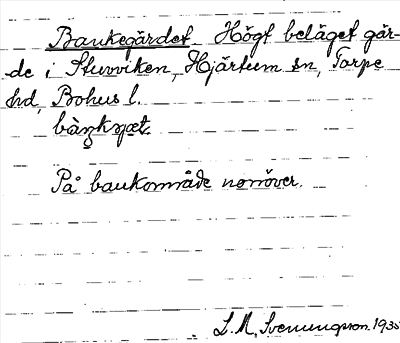 Baukegärdet Högt beläget gär-
de i Stuvviken, Hjärtum sn, Torpe
hd, Bohus l.

På baukområde norröver.
L. M. Svenungsson. 1935